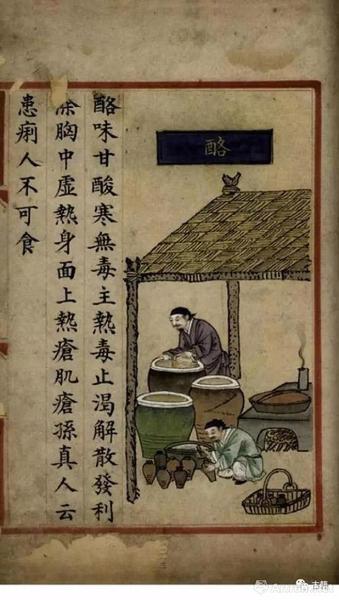 酪
酪味甘酸寒無毒主熱毒止渴解散發利
除胸中虛熱身面上熱瘡肌瘡孫真人云
患痢人不可食